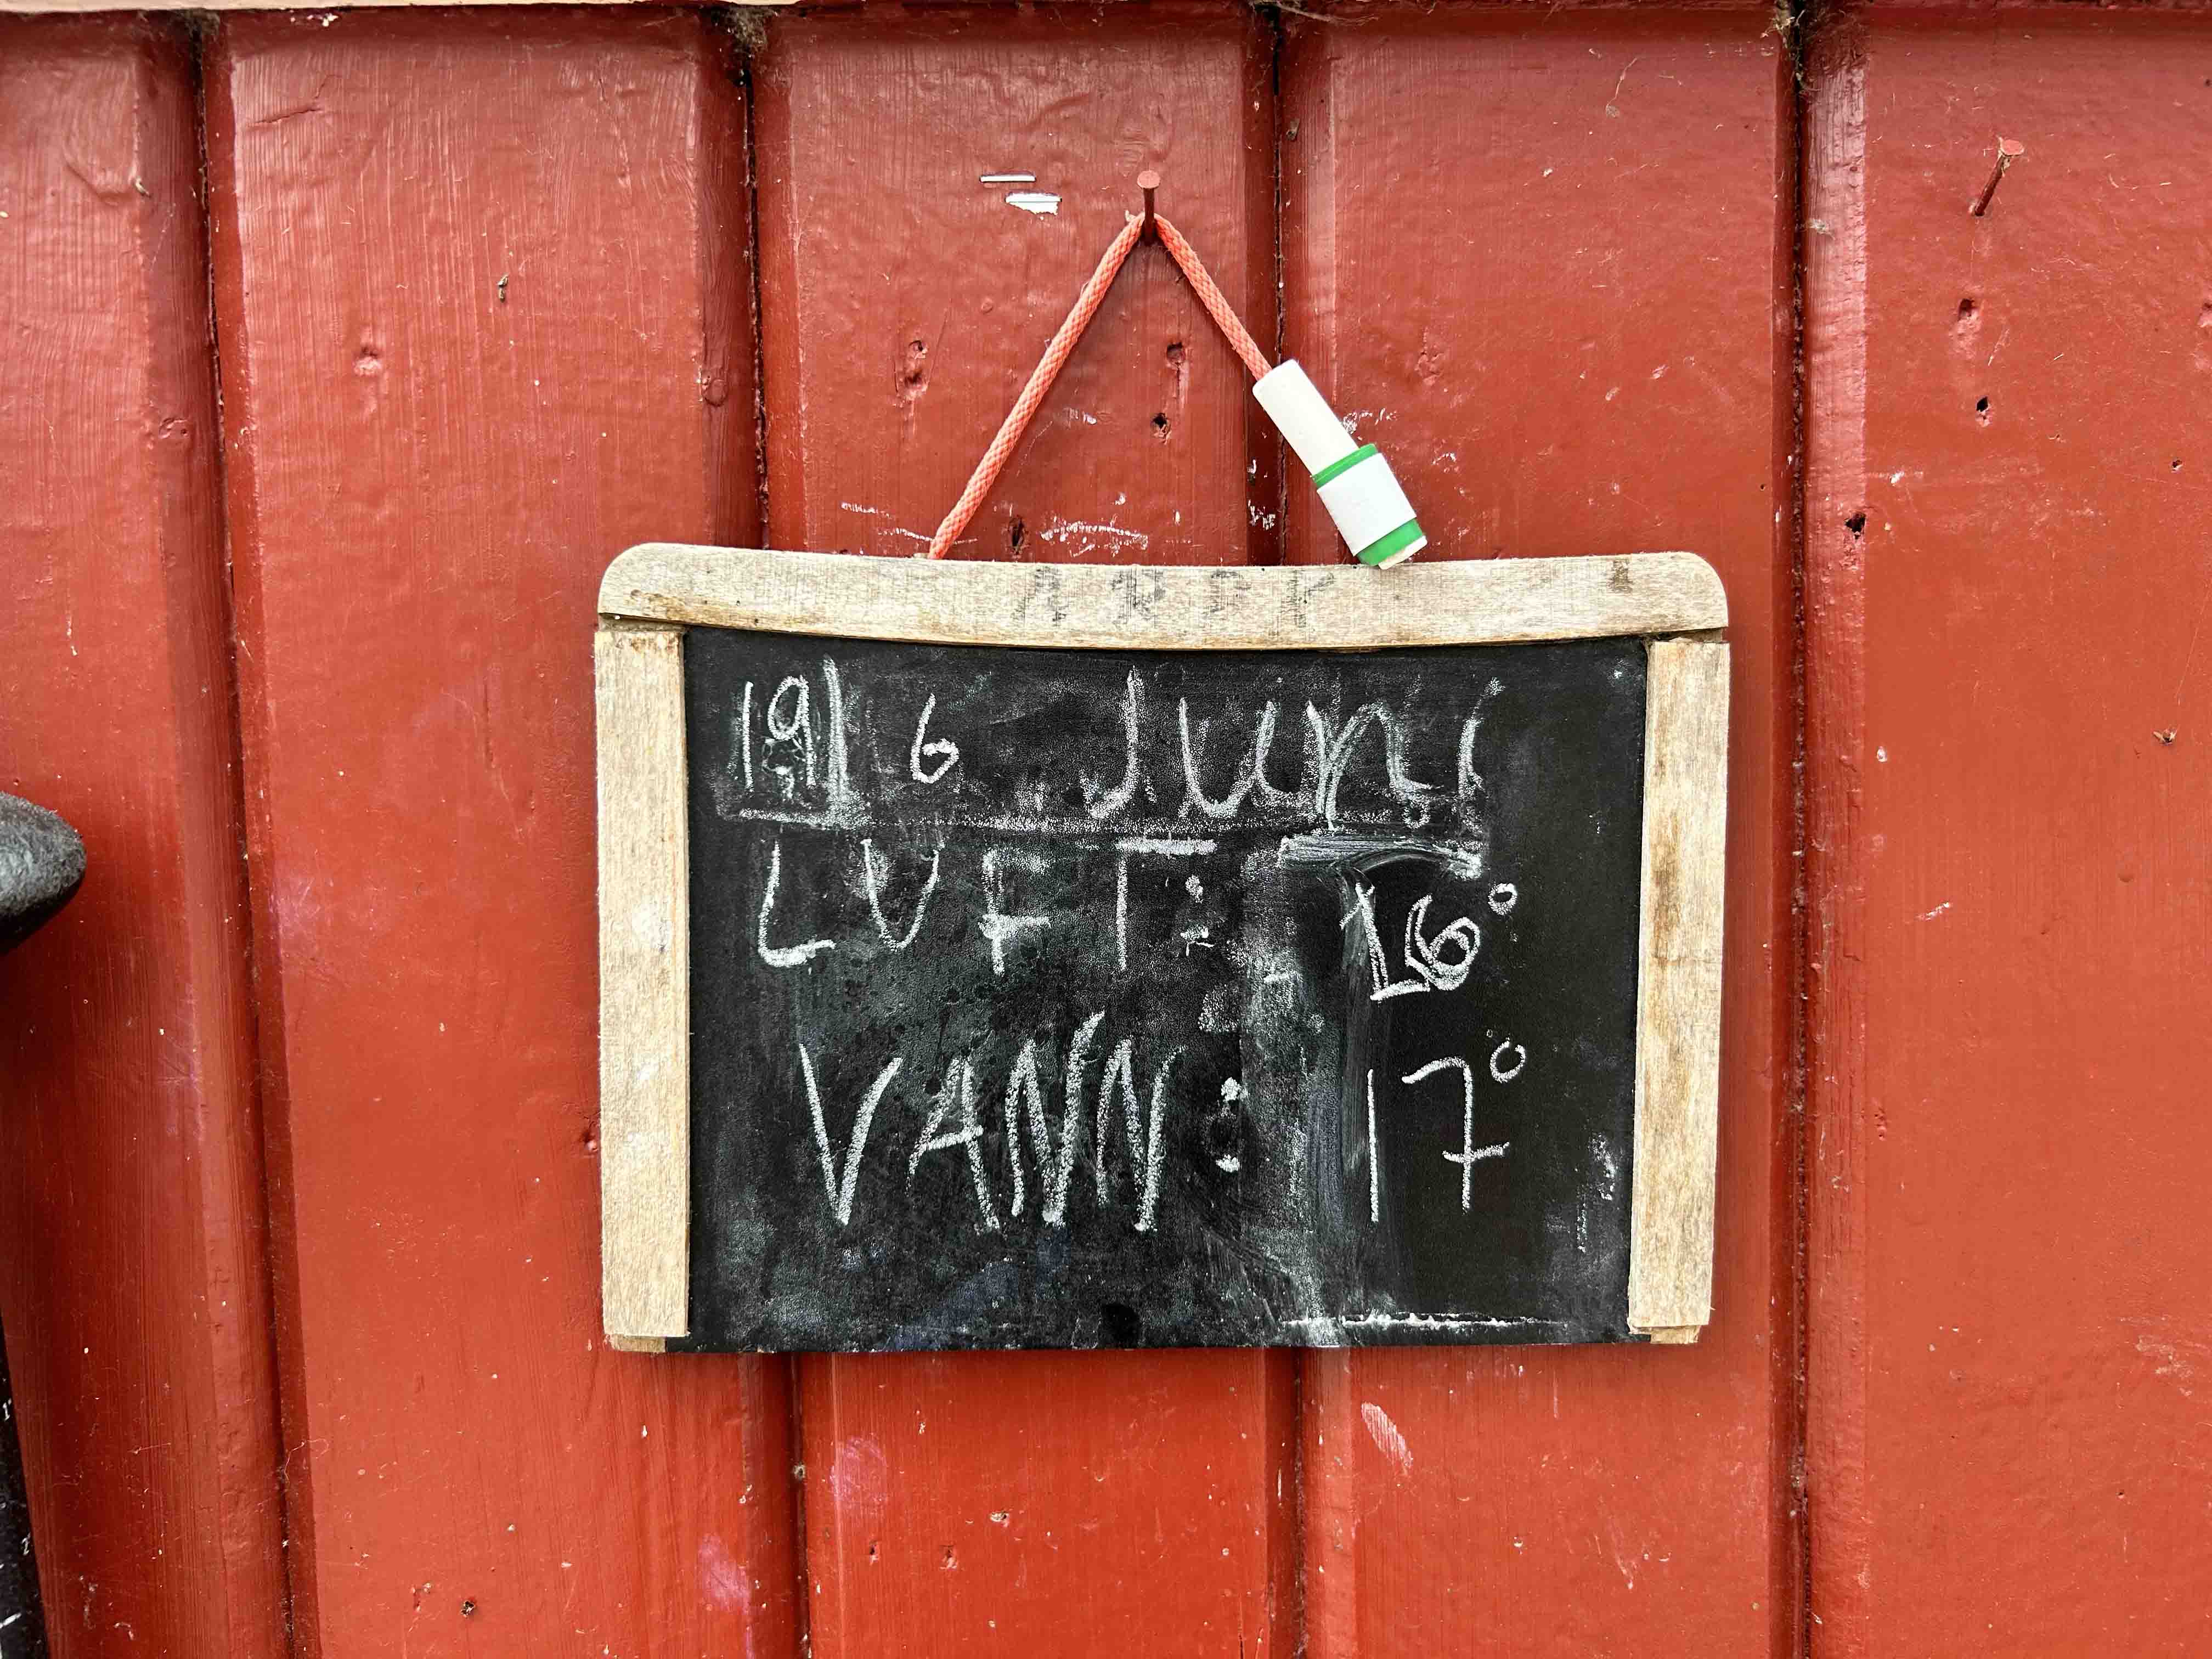 19 6 Juni
LUFT: 16°
VANN: 17°